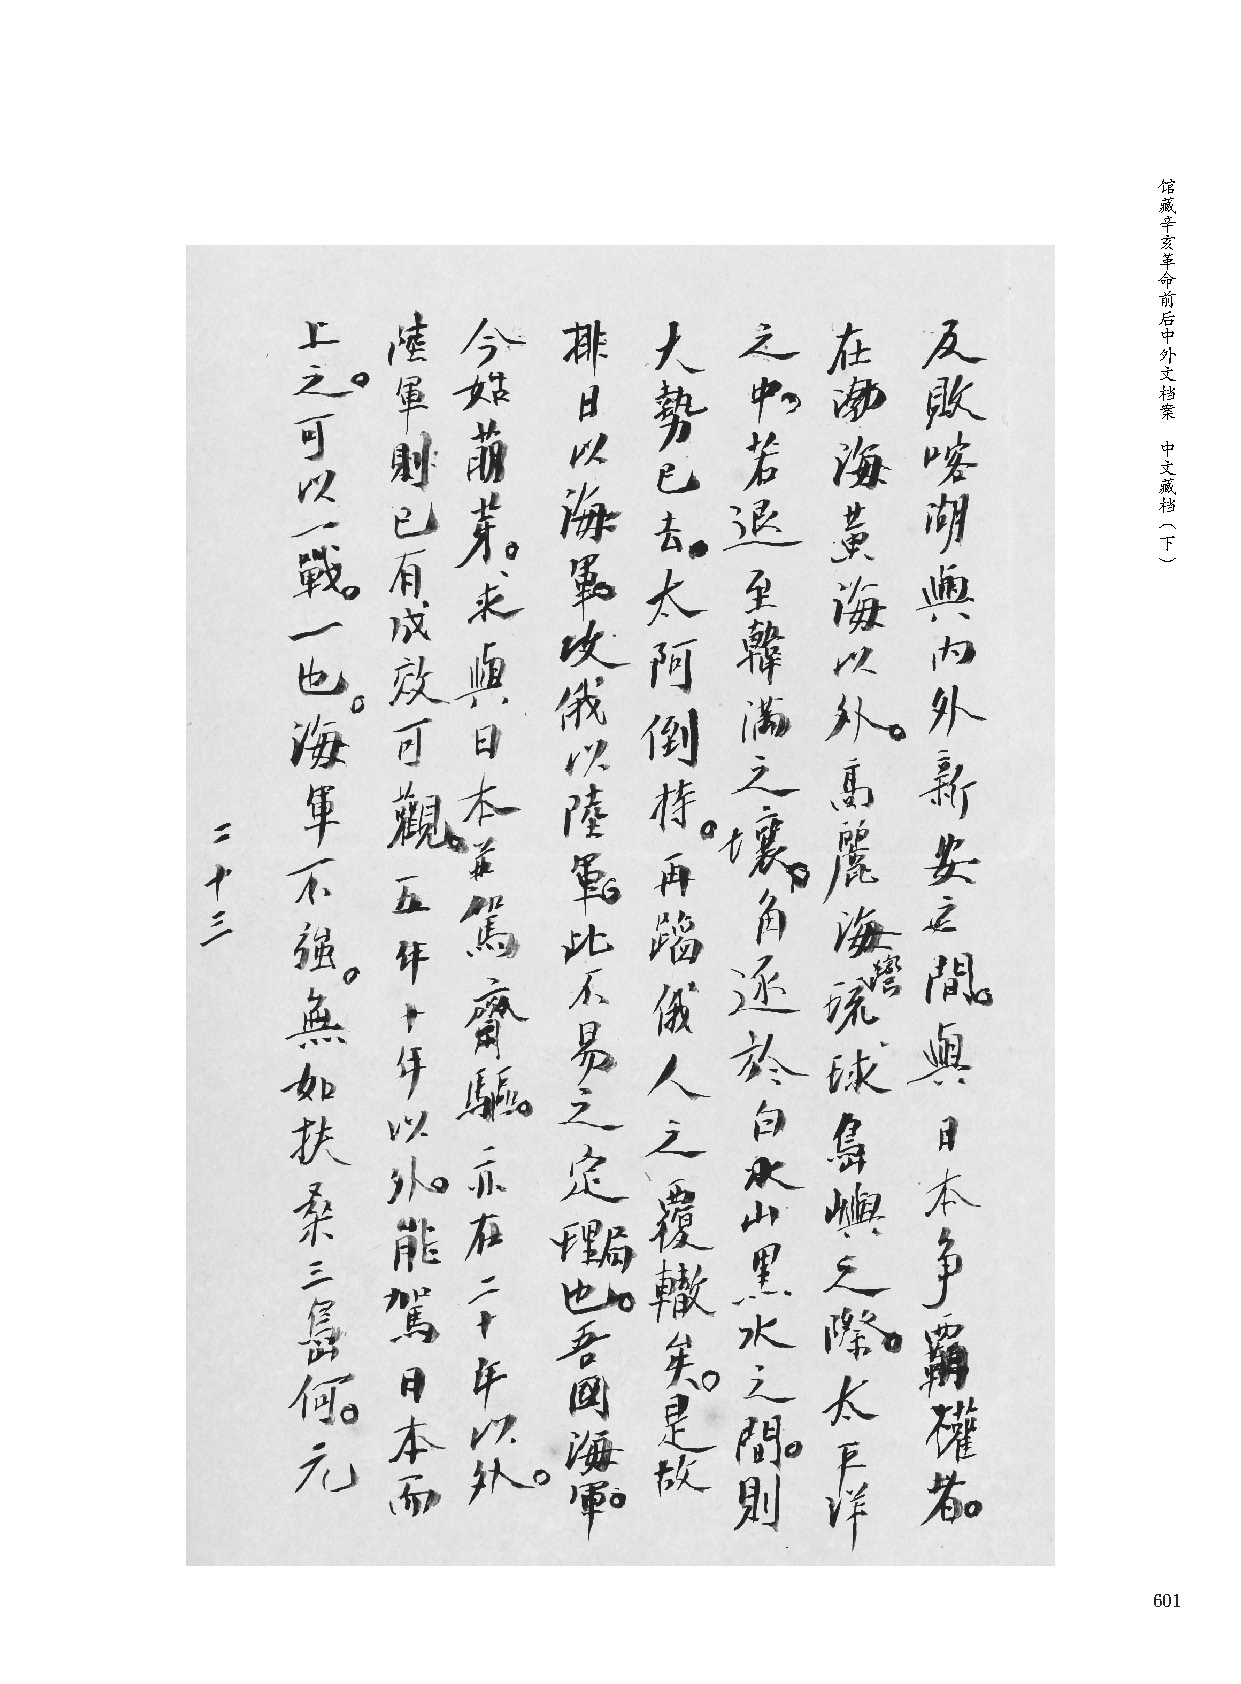 馆藏辛亥革命前后中外文档案　中文藏档（下）
反敗喀湖與內外新安之間。與日本争覇權者。
在渤海黃海以外。高麗海灣琉球島嶼之際。太平洋
之中。若退至韓滿之壤。角逐於白氷山黑水之間。則
大勢已去。太阿倒持。再蹈俄人之覆轍矣。是故
排日以海軍。攻俄以陸軍。此不易之定理局也。吾國海軍。
今始萌芽。求與日本並駕齊驅。亦在二十年以外。
陸軍則已有成效可觀。五年十年以外。能駕日本而
上之。可以一戰。一也。海軍不强。無如扶桑三島何。元
二十三
601